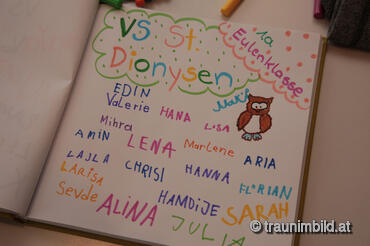 VS St.
Dionysen
1a
Eulenklasse
EDIN
Valerie
HANA
LISA
Mihra
AMIN
LENA
Marlene
ARIA
LAJLA
CHRISI
HANNA
FLORIAN
LARISA
Sevde
ALINA
HAMDIJE
SARAH
JULIA
© traunimbild.at